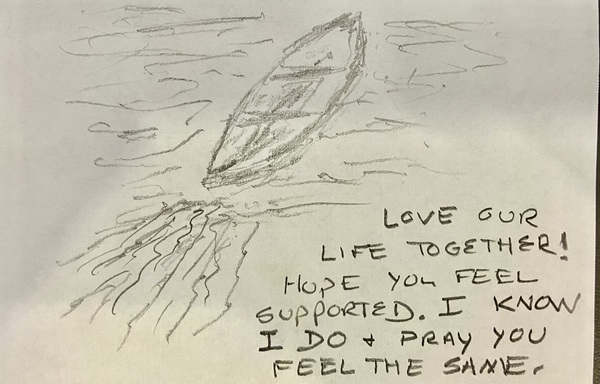 LOVE OUR
LIFE TOGETHER!
HOPE YOU FEEL
SUPPORTED. I KNOW
I DO + PRAY YOU
FEEL THE SAME.